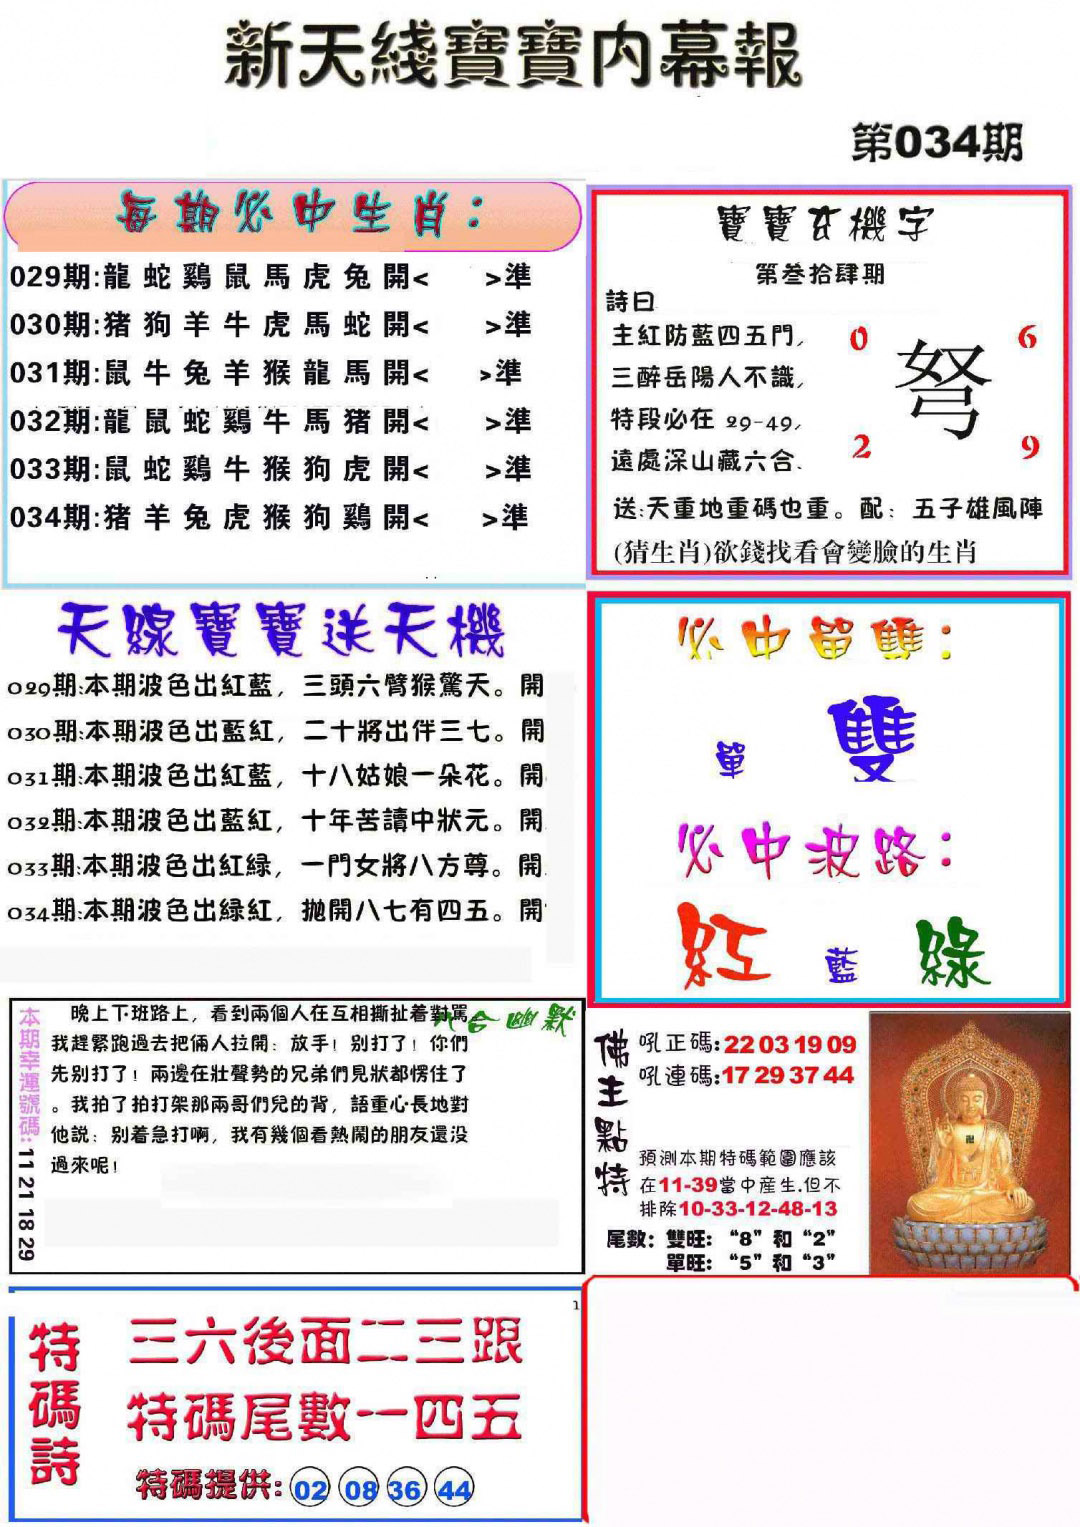 新天綫寶寶内幕報
第034期
每期必中生肖：
029期:龍蛇鷄鼠馬虎兔開< >準
030期:猪狗羊牛虎馬蛇開< >準
031期:鼠牛兔羊猴龍馬開< >準
032期:龍鼠蛇鷄牛馬猪開< >準
033期:鼠蛇鷄牛猴狗虎開< >準
034期:猪羊兔虎猴狗鷄開< >準
寶寶玄機字
第叁拾肆期
詩曰
主紅防藍四五門,
三醉岳陽人不識,
特段必在 29-49,
遠處深山藏六合.
0 6
弩
2 9
送:天重地重碼也重。配：五子雄風陣
(猜生肖)欲錢找看會變臉的生肖
天線寶寶送天機
029期:本期波色出紅藍，三頭六臂猴驚天。開
030期:本期波色出藍紅，二十將出伴三七。開
031期:本期波色出紅藍，十八姑娘一朵花。開
032期:本期波色出藍紅，十年苦讀中狀元。開
033期:本期波色出紅綠，一門女將八方尊。開
034期:本期波色出綠紅，拋開八七有四五。開
必中單雙：
單 雙
必中波路：
紅 藍 綠
本期幸運號碼: 11 21 18 29
六合幽默
晚上下班路上，看到兩個人在互相撕扯着對駡
我趕緊跑過去把倆人拉開：放手！别打了！你們
先别打了！兩邊在壯聲勢的兄弟們見狀都愣住了
。我拍了拍打架那兩哥們兒的背，語重心長地對
他説：别着急打啊，我有幾個看熱鬧的朋友還没
過來呢！
佛主點特
吼正碼:22 03 19 09
吼連碼:17 29 37 44
預測本期特碼範圍應該
在11-39當中産生.但不
排除10-33-12-48-13
尾數：雙旺：“8”和“2”
單旺：“5”和“3”
特碼詩
三六後面二三跟
特碼尾數一四五
特碼提供: 02 08 36 44